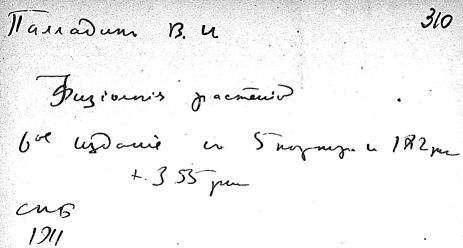 Палладинъ В. И
310
Физіологія растеній
6ое изданіе съ 5 портр. и 182 рис
+. 355 ст
СПБ
1911